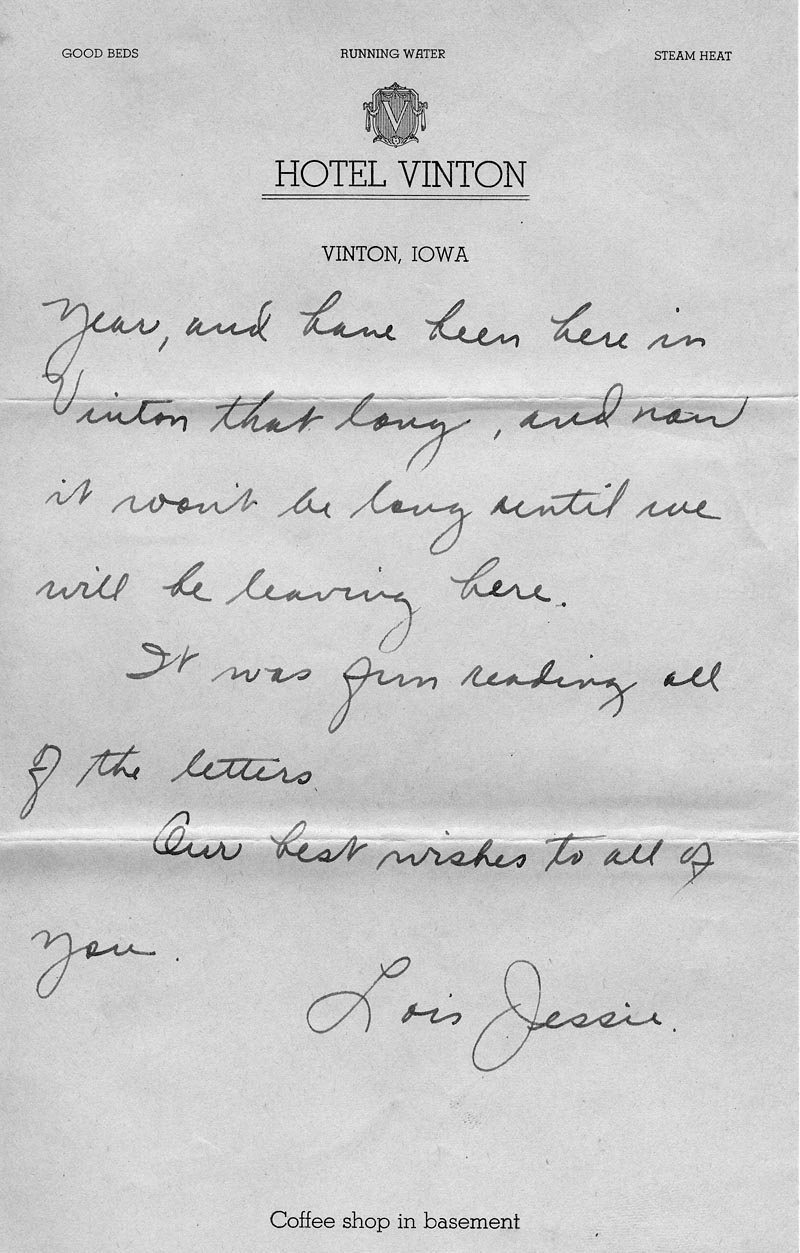 GOOD BEDS RUNNING WATER STEAM HEAT
V
HOTEL VINTON
VINTON, IOWA
year, and have been here in
Vinton that long, and now
it won't be long until we
will be leaving here.
It was fun reading all
of the letters
Our best wishes to all of
you.
Lois Jessie.
Coffee shop in basement